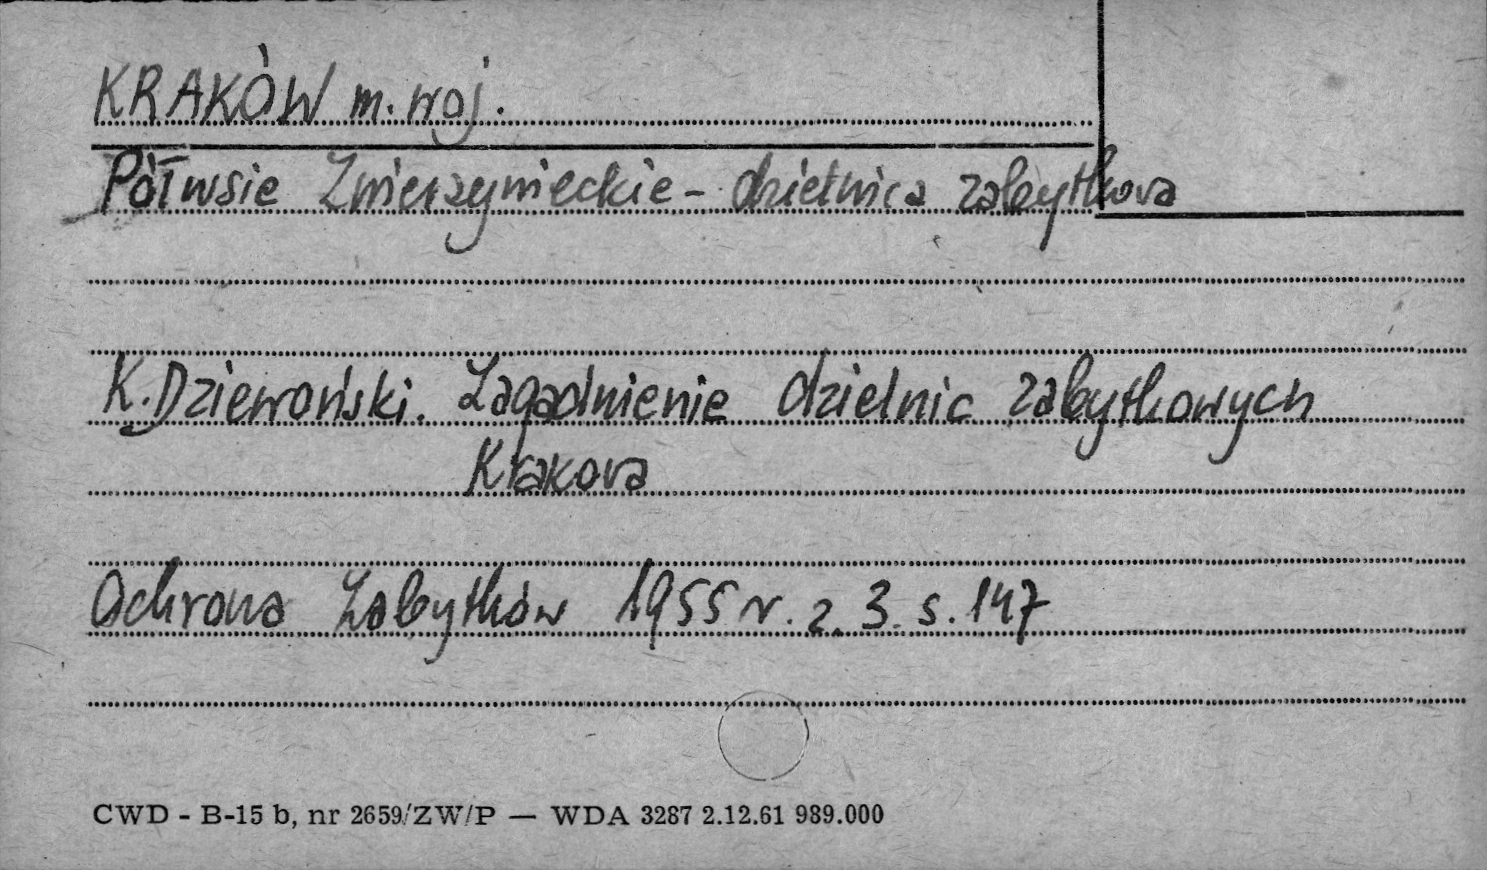 KRAKÓW m. woj.
Półwsie Zwierzynieckie - dzielnica zabytkowa
K. Dziewoński. Zagadnienie dzielnic zabytkowych
Krakowa
Ochrona Zabytków 1955 r. z. 3. s. 147
CWD - B-15 b, nr 2659/ZW/P — WDA 3287 2.12.61 989.000